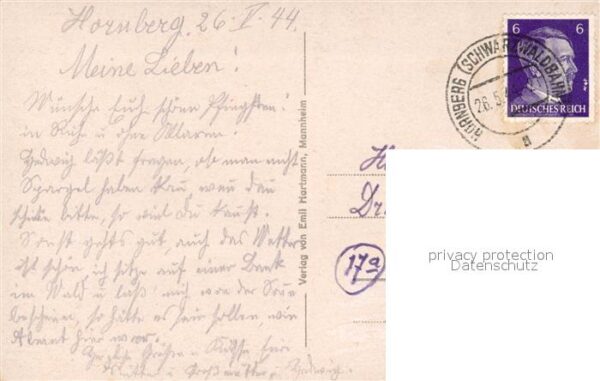 Hornberg, 26. V. 44.
Meine Lieben!
Wünsche Euch schöne Pfingsten!
in Ruhe u ohne Alarm.
Hedwig läßt fragen, ob man nicht
Spargel haben kann, wenn dann
schicke bitte, so viel Du kaufst.
Sonst gehts gut, auch das Wetter
ist schön, ich sitze auf einer Bank
im Wald u laß mich von der Sonne
bescheinen, so hätte es sein sollen, wie
hier war.
Herzliche Grüßen u Küsse Eure
Mutter u Großmutter, Hedwig.
Verlag von Emil Hartmann, Mannheim
HORNBERG (SCHWARZWALDBAHN)
26.5.
a
6 6
DEUTSCHES REICH
H
Dr.
17a
privacy protection
Datenschutz